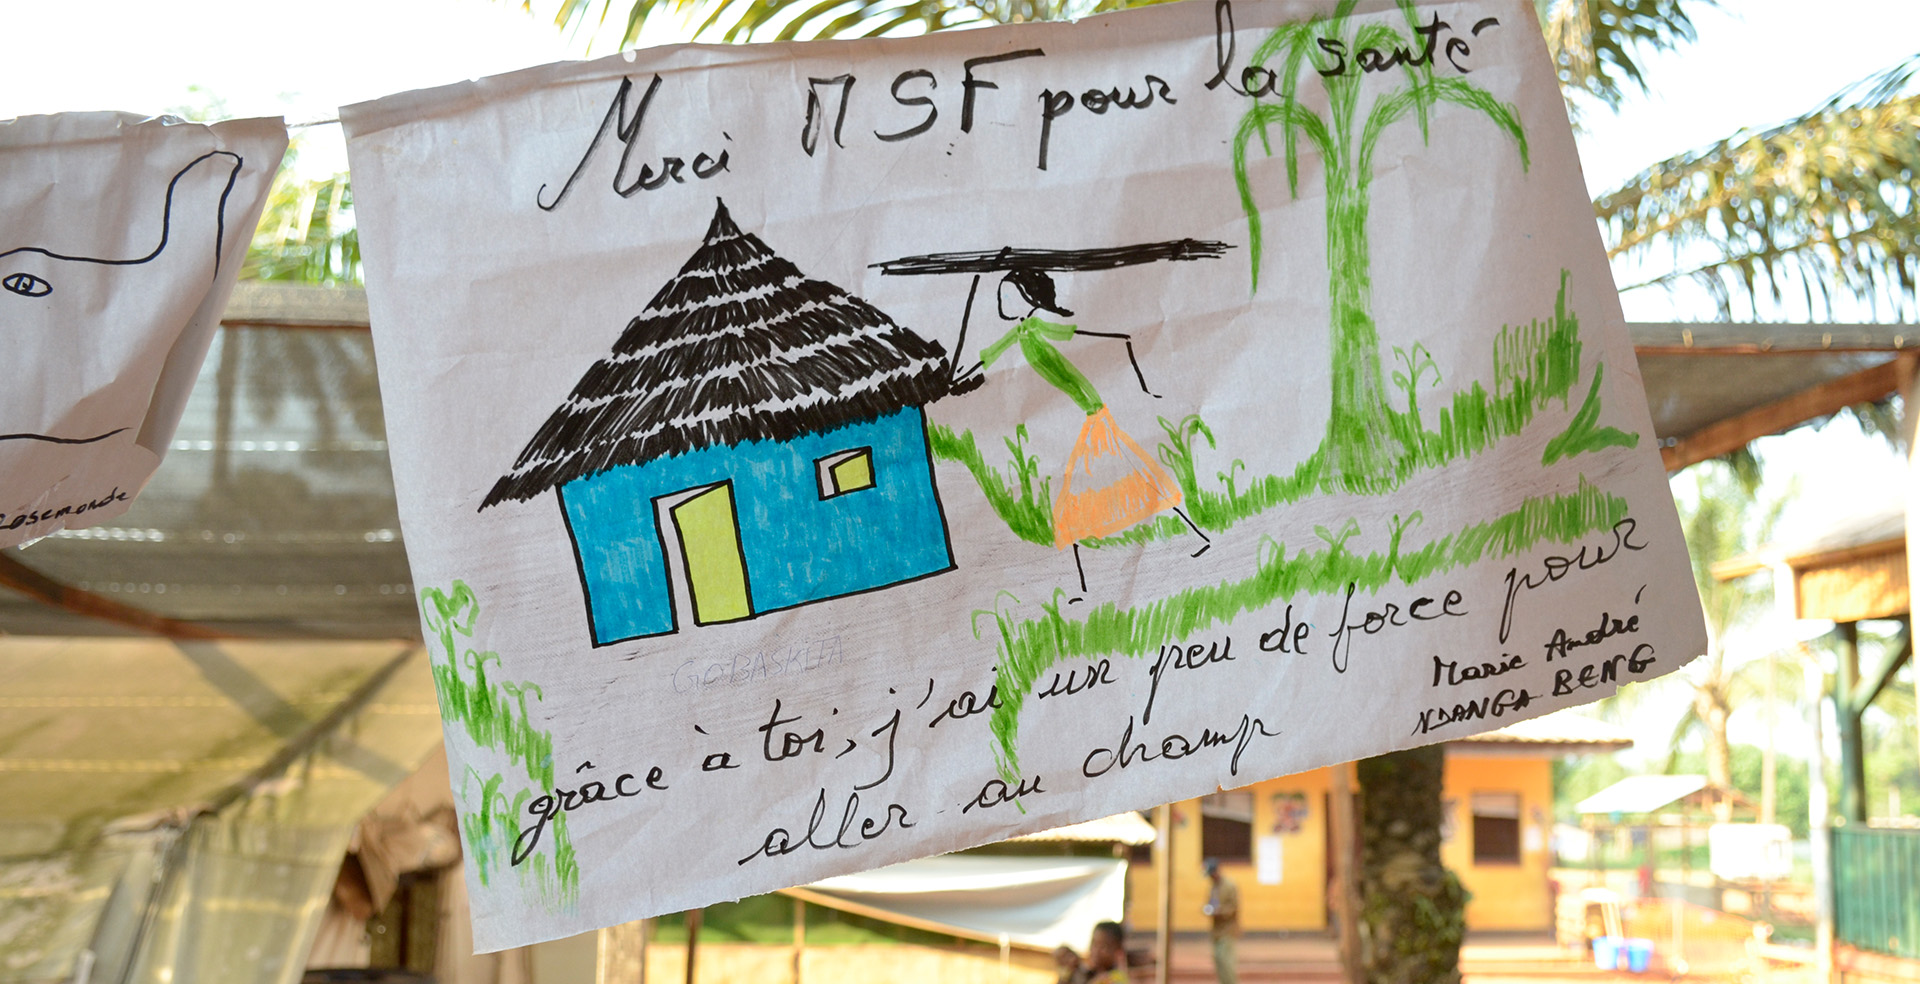 Merci MSF pour la santé
GOBASKUTA
grâce à toi, j'ai un peu de force pour
aller au champ
Marie André
NDANGA BENG
Rosemonde